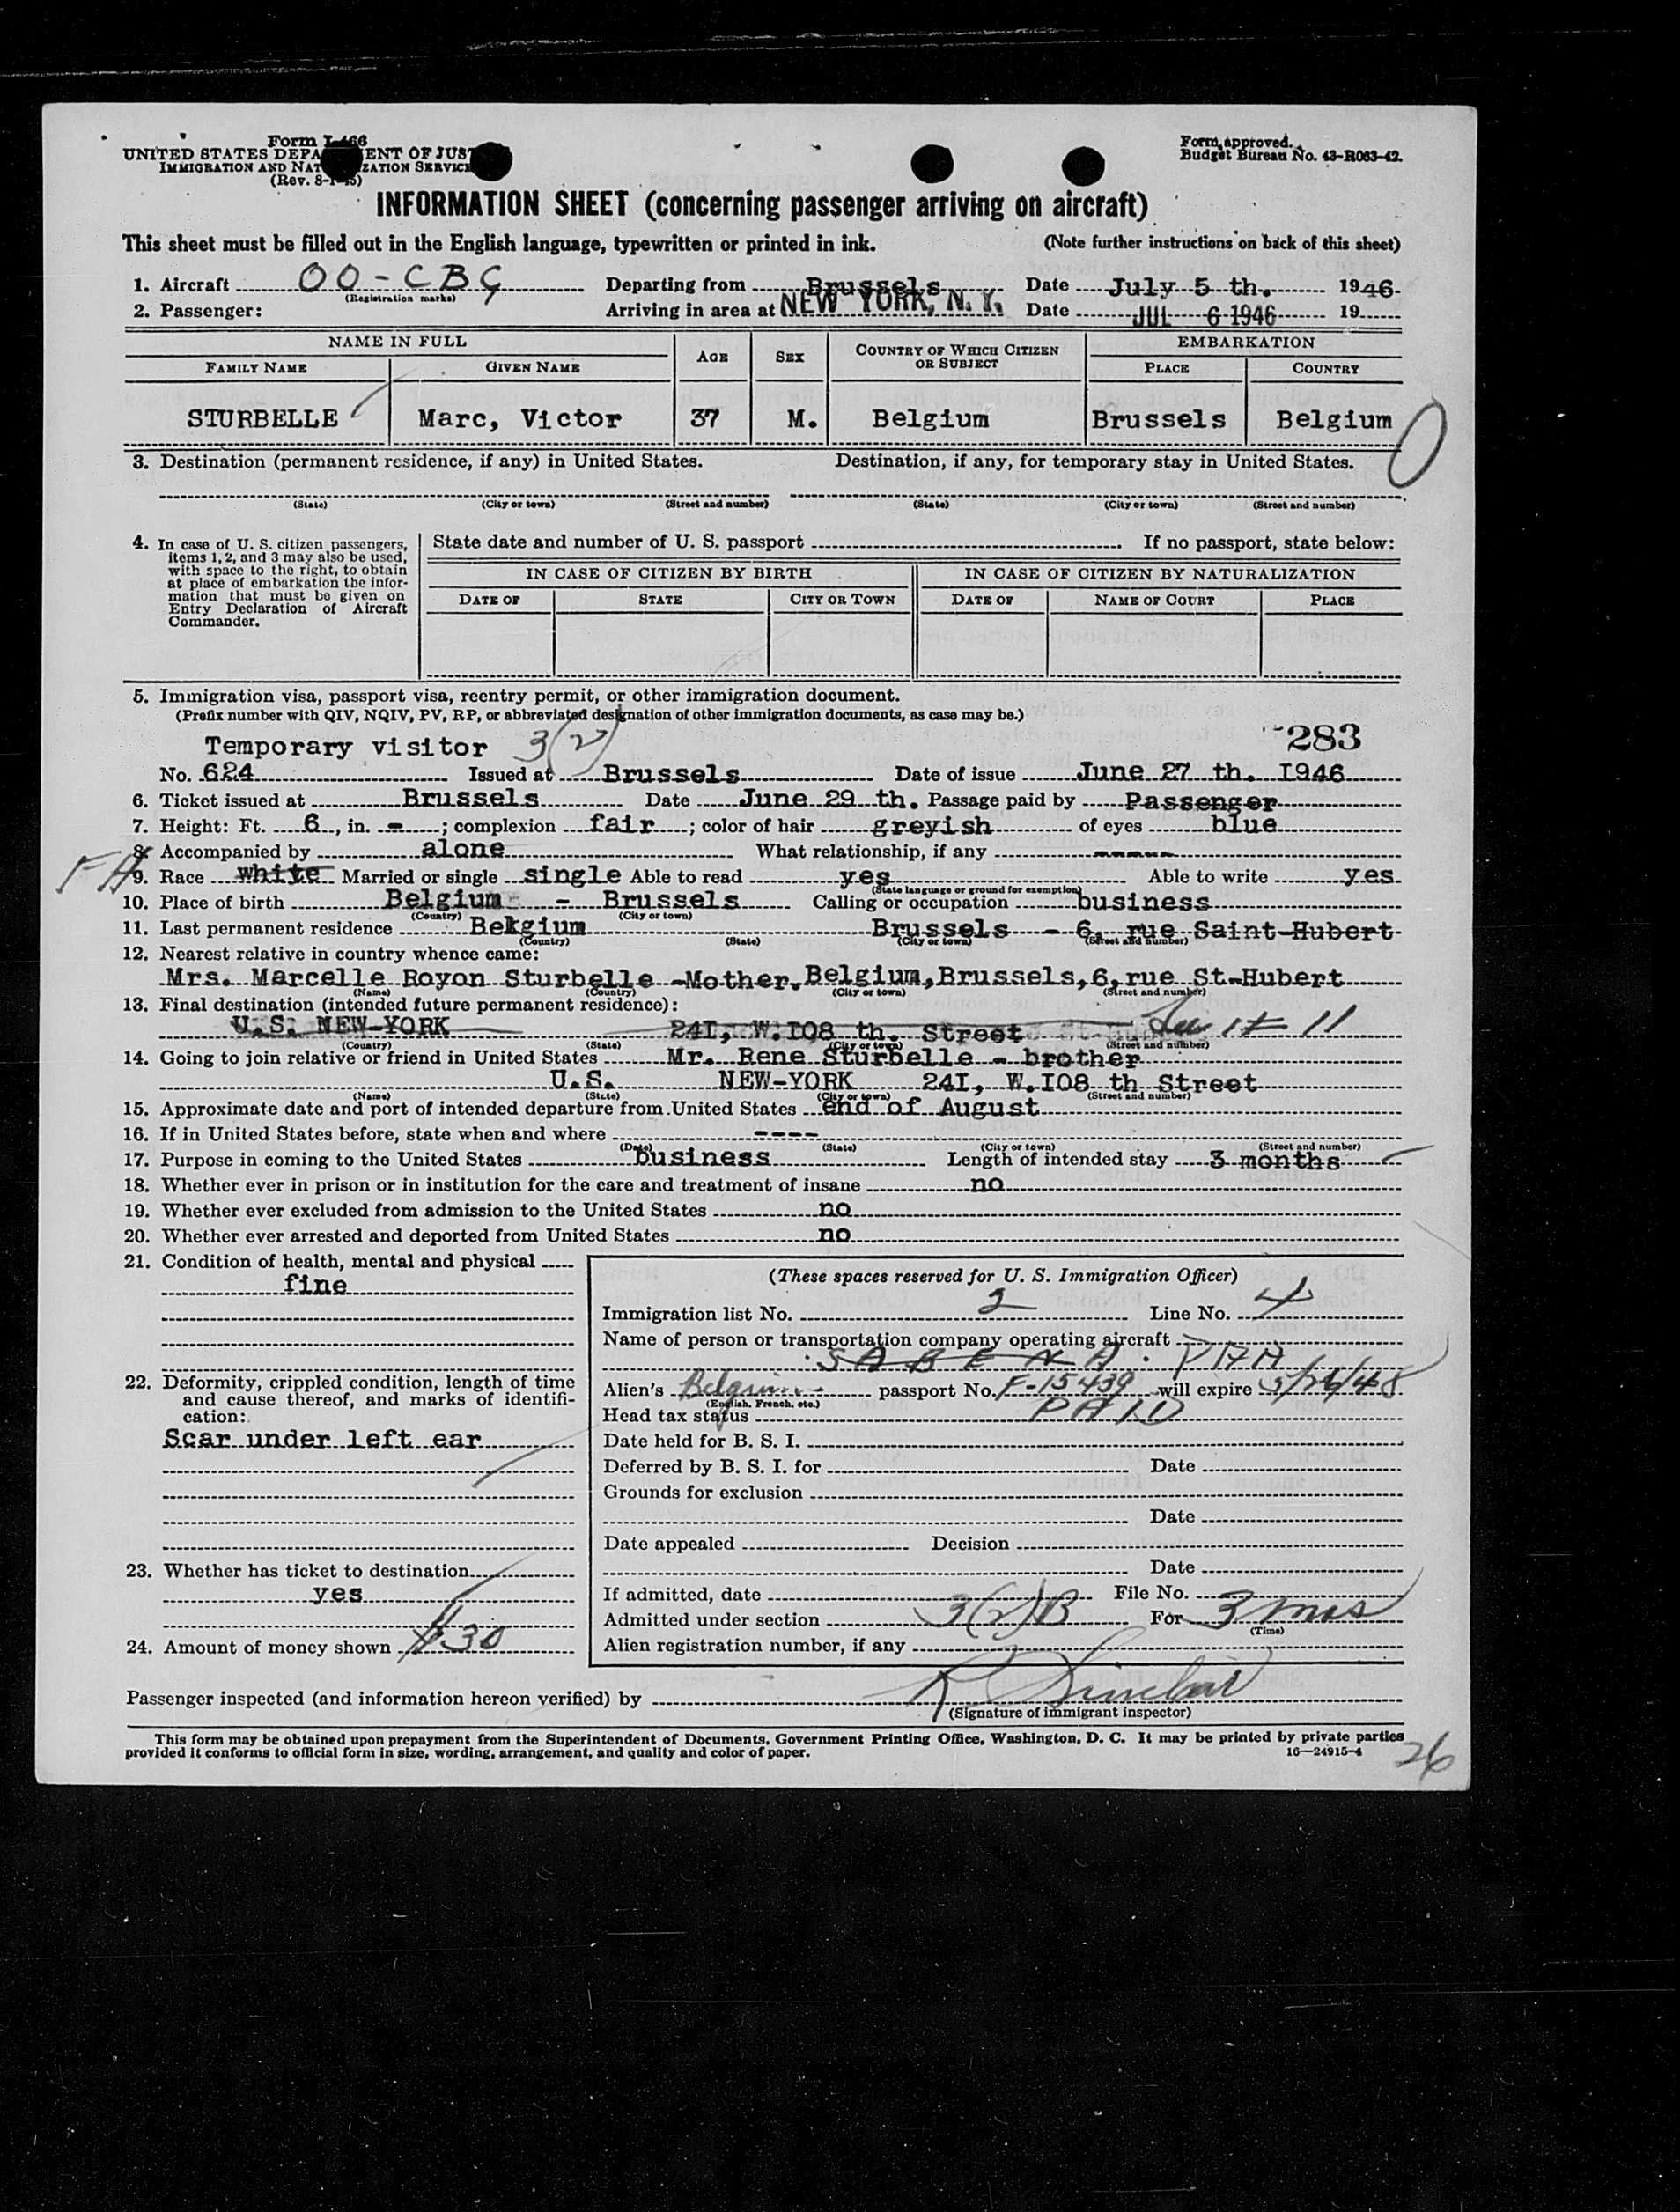 Form I-466
UNITED STATES DEPA ENT OF JUS
IMMIGRATION AND NAT ZATION SERVICE
(Rev. 8-1-45)
Form approved.
Budget Bureau No. 43-R063-42.
INFORMATION SHEET (concerning passenger arriving on aircraft)
This sheet must be filled out in the English language, typewritten or printed in ink. (Note further instructions on back of this sheet)
1. Aircraft OO-CBG Departing from Brussels Date July 5 th. 1946.
(Registration marks)
2. Passenger: Arriving in area at NEW YORK, N. Y. Date JUL 6 1946 19
NAME IN FULL AGE SEX COUNTRY OF WHICH CITIZEN OR SUBJECT EMBARKATION
FAMILY NAME GIVEN NAME PLACE COUNTRY
STURBELLE Marc, Victor 37 M. Belgium Brussels Belgium
3. Destination (permanent residence, if any) in United States. Destination, if any, for temporary stay in United States.
(State) (City or town) (Street and number) (State) (City or town) (Street and number)
4. In case of U. S. citizen passengers,
items 1, 2, and 3 may also be used,
with space to the right, to obtain
at place of embarkation the infor-
mation that must be given on
Entry Declaration of Aircraft
Commander.
State date and number of U. S. passport If no passport, state below:
IN CASE OF CITIZEN BY BIRTH IN CASE OF CITIZEN BY NATURALIZATION
DATE OF STATE CITY OR TOWN DATE OF NAME OF COURT PLACE
5. Immigration visa, passport visa, reentry permit, or other immigration document.
(Prefix number with QIV, NQIV, PV, RP, or abbreviated designation of other immigration documents, as case may be.)
Temporary visitor 3(2) 283
No. 624 Issued at Brussels Date of issue June 27 th. I946
6. Ticket issued at Brussels Date June 29 th. Passage paid by Passenger
7. Height: Ft. 6, in. -; complexion fair; color of hair greyish of eyes blue
8. Accompanied by alone What relationship, if any -----
9. Race white Married or single single Able to read yes Able to write yes
(State language or ground for exemption)
10. Place of birth Belgium - Brussels Calling or occupation business
(Country) (City or town)
11. Last permanent residence Bekgium Brussels - 6, rue Saint-Hubert
(Country) (State) (City or town) (Street and number)
12. Nearest relative in country whence came:
Mrs. Marcelle Royon Sturbelle -Mother. Belgium, Brussels, 6, rue St-Hubert
(Name) (Country) (City or town) (Street and number)
13. Final destination (intended future permanent residence):
U.S. NEW-YORK 24I, W.I08 th. Street 11
(Country) (State) (City or town) (Street and number)
14. Going to join relative or friend in United States Mr. Rene Sturbelle - brother
U.S. NEW-YORK 24I, W.I08 th Street
(Name) (State) (City or town) (Street and number)
15. Approximate date and port of intended departure from United States end of August
16. If in United States before, state when and where ----
(Date) (State) (City or town) (Street and number)
17. Purpose in coming to the United States business Length of intended stay 3 months
18. Whether ever in prison or in institution for the care and treatment of insane no
19. Whether ever excluded from admission to the United States no
20. Whether ever arrested and deported from United States no
21. Condition of health, mental and physical
fine
22. Deformity, crippled condition, length of time
and cause thereof, and marks of identifi-
cation:
Scar under left ear
23. Whether has ticket to destination
yes
24. Amount of money shown $30
(These spaces reserved for U. S. Immigration Officer)
Immigration list No. 2 Line No. 4
Name of person or transportation company operating aircraft
SABENA. PAA
Alien's Belgium passport No. F-15439 will expire 5/26/48
(English, French, etc.)
Head tax status PAID
Date held for B. S. I.
Deferred by B. S. I. for Date
Grounds for exclusion
Date
Date appealed Decision
Date
If admitted, date File No.
Admitted under section 3(2)B For 3 mos
(Time)
Alien registration number, if any
Passenger inspected (and information hereon verified) by R Sinclair
(Signature of immigrant inspector)
This form may be obtained upon prepayment from the Superintendent of Documents, Government Printing Office, Washington, D. C. It may be printed by private parties
provided it conforms to official form in size, wording, arrangement, and quality and color of paper. 16—24915-4
26